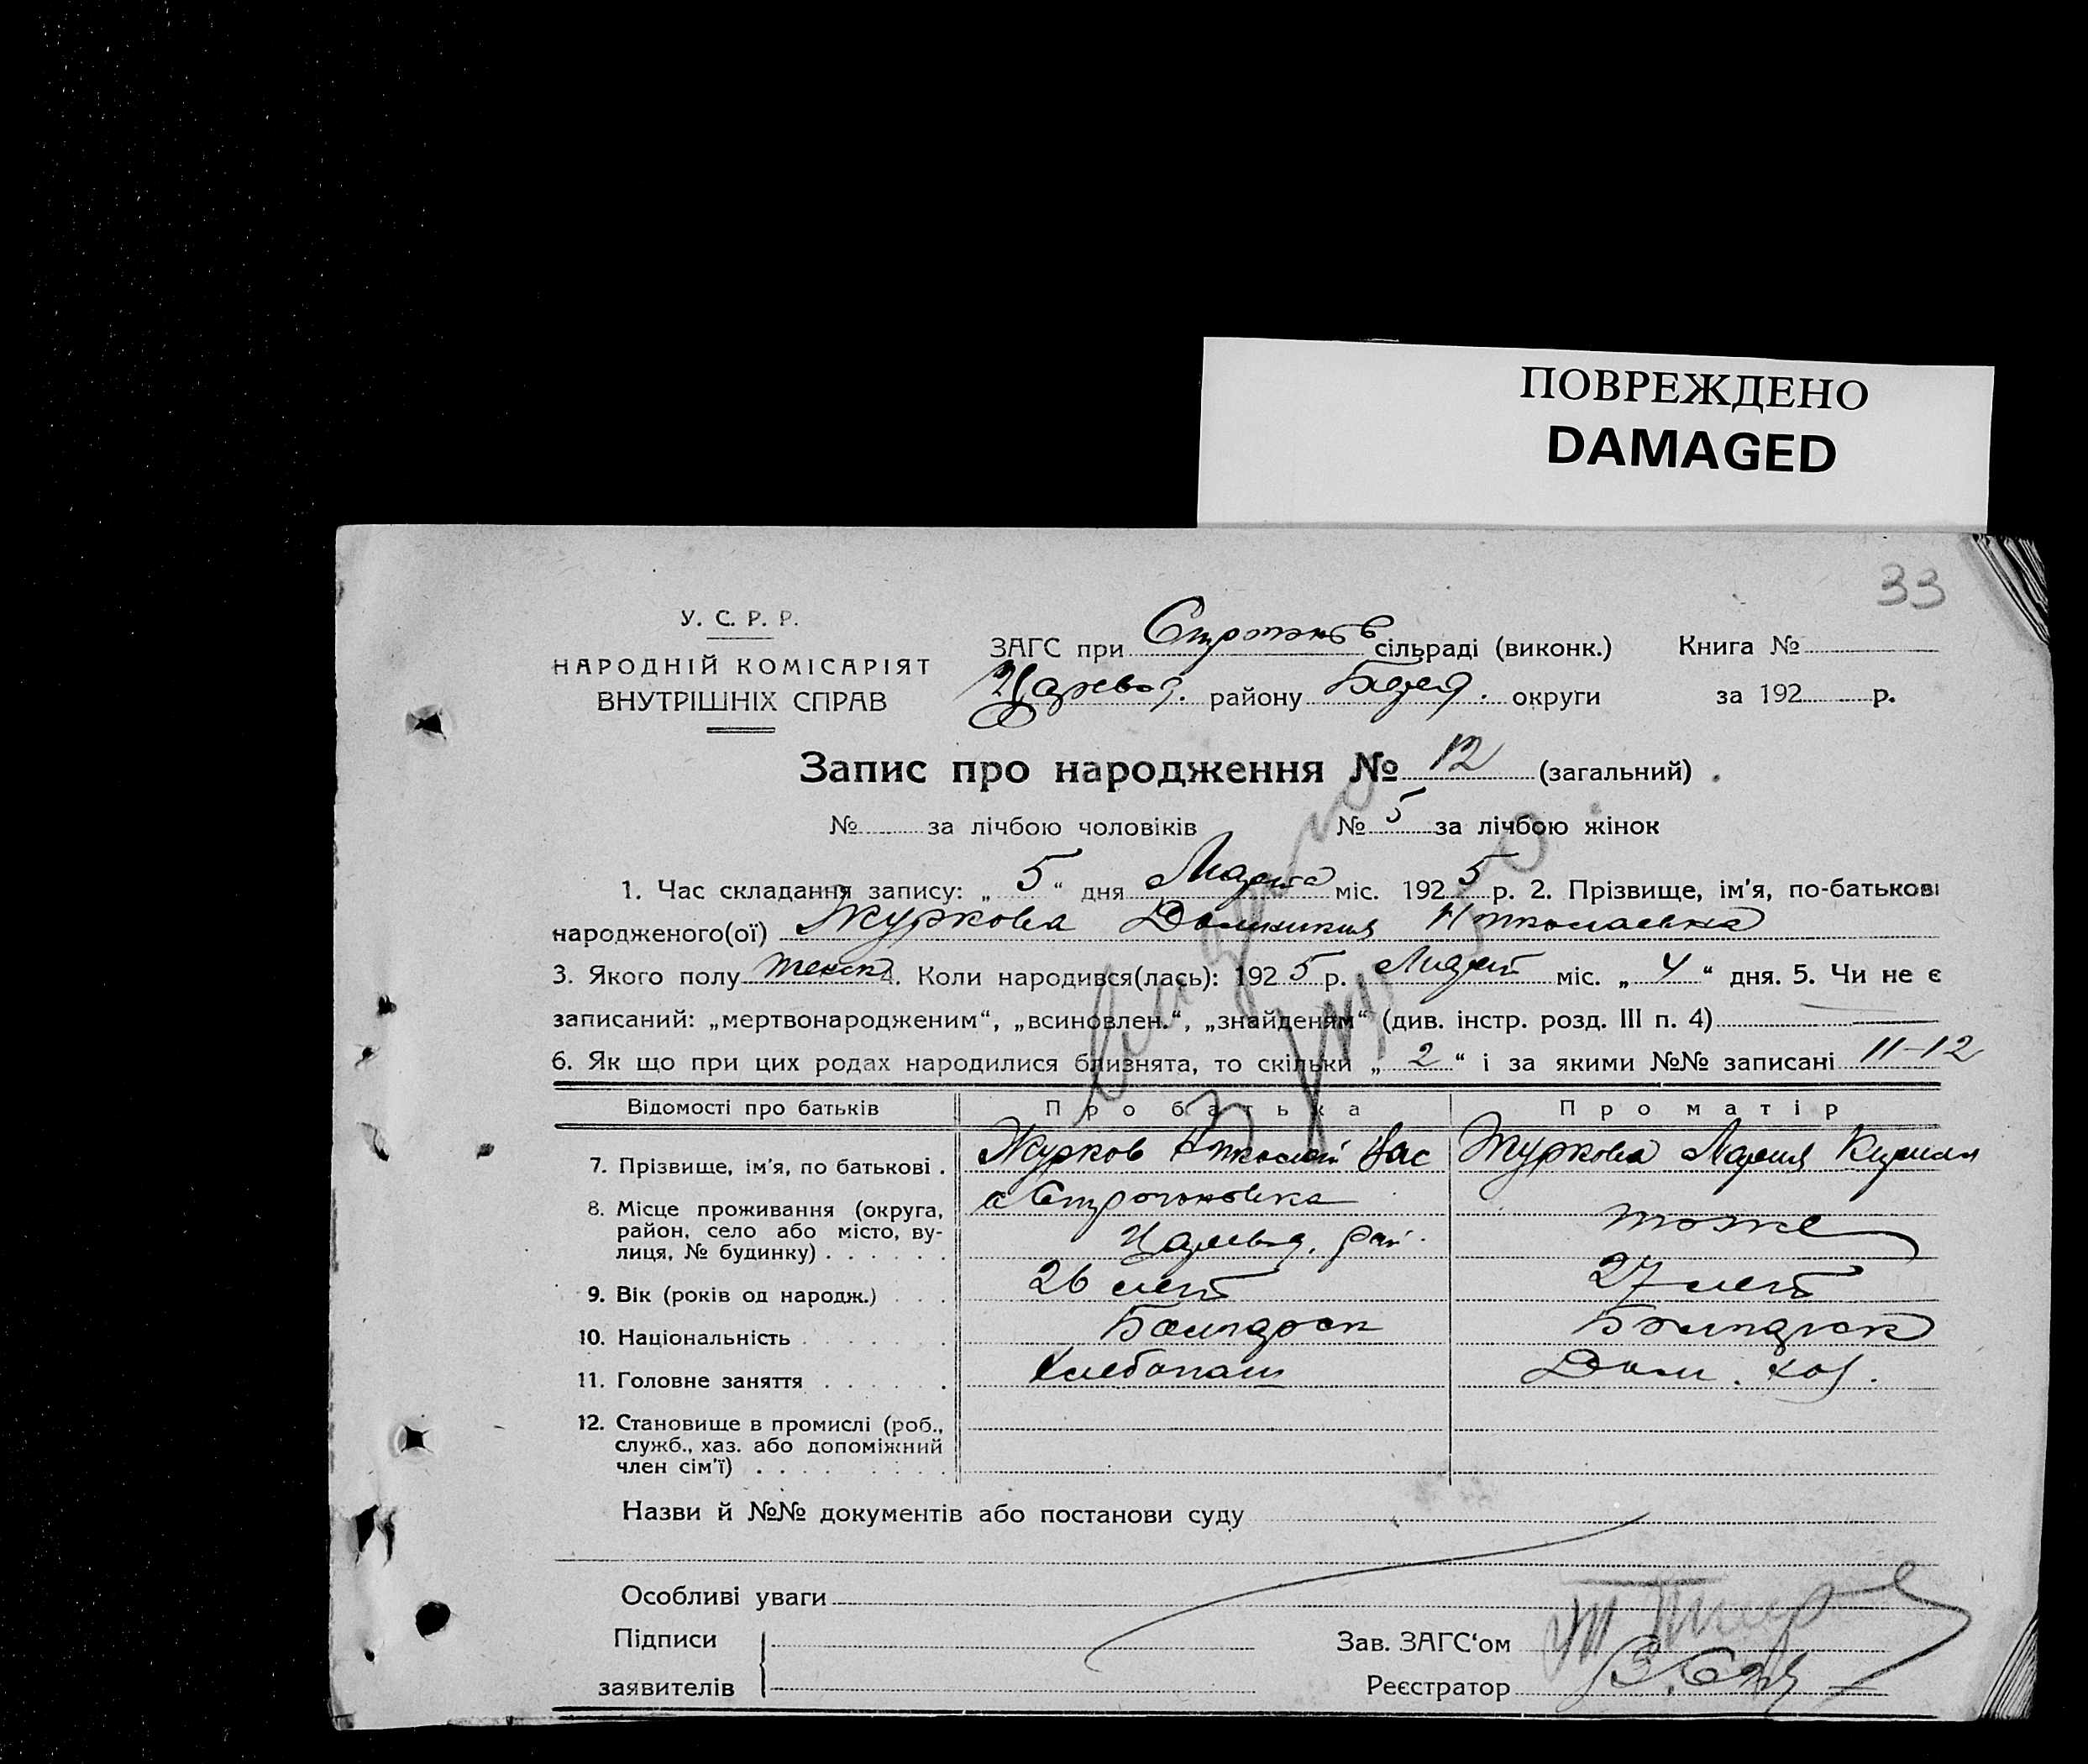 ПОВРЕЖДЕНО
DAMAGED
33
У. С. Р. Р.
НАРОДНІЙ КОМІСАРІЯТ
ВНУТРІШНІХ СПРАВ
ЗАГС при сільраді (виконк.) Книга №
району округи за 192 р.
Запис про народження № 12 (загальний)
№ за лічбою чоловіків № 5 за лічбою жінок
1. Час складання запису: „ 5 “ дня Марта міс. 1925 р. 2. Прізвище, ім'я, по-батькові
народженого(ої) Журкова Домникия Николаевна
3. Якого полу женск 4. Коли народився(лась): 1925 р. Март міс. „ 4 “ дня. 5. Чи не є
записаний: „мертвонародженим“, „всиновлен.“, „знайденям“ (див. інстр. розд. III п. 4)
6. Як що при цих родах народилися близнята, то скільки „ 2 “ і за якими №№ записані 11-12
Відомості про батьків Про батька Про матір
7. Прізвище, ім'я, по батькові . Журков Николай Вас Журкова Мария Кирилл
8. Місце проживання (округа, район, село або місто, вулиця, № будинку) с Строгоновка
тоже
9. Вік (років од народж.) 26 лет 27 лет
10. Національність Болгарск Болгарск
11. Головне заняття Хлебопаш Дом. хоз.
12. Становище в промислі (роб., служб., хаз. або допоміжний член сім'ї)
Назви й №№ документів або постанови суду
Особливі уваги
Підписи
заявителів
Зав. ЗАГС'ом
Реєстратор